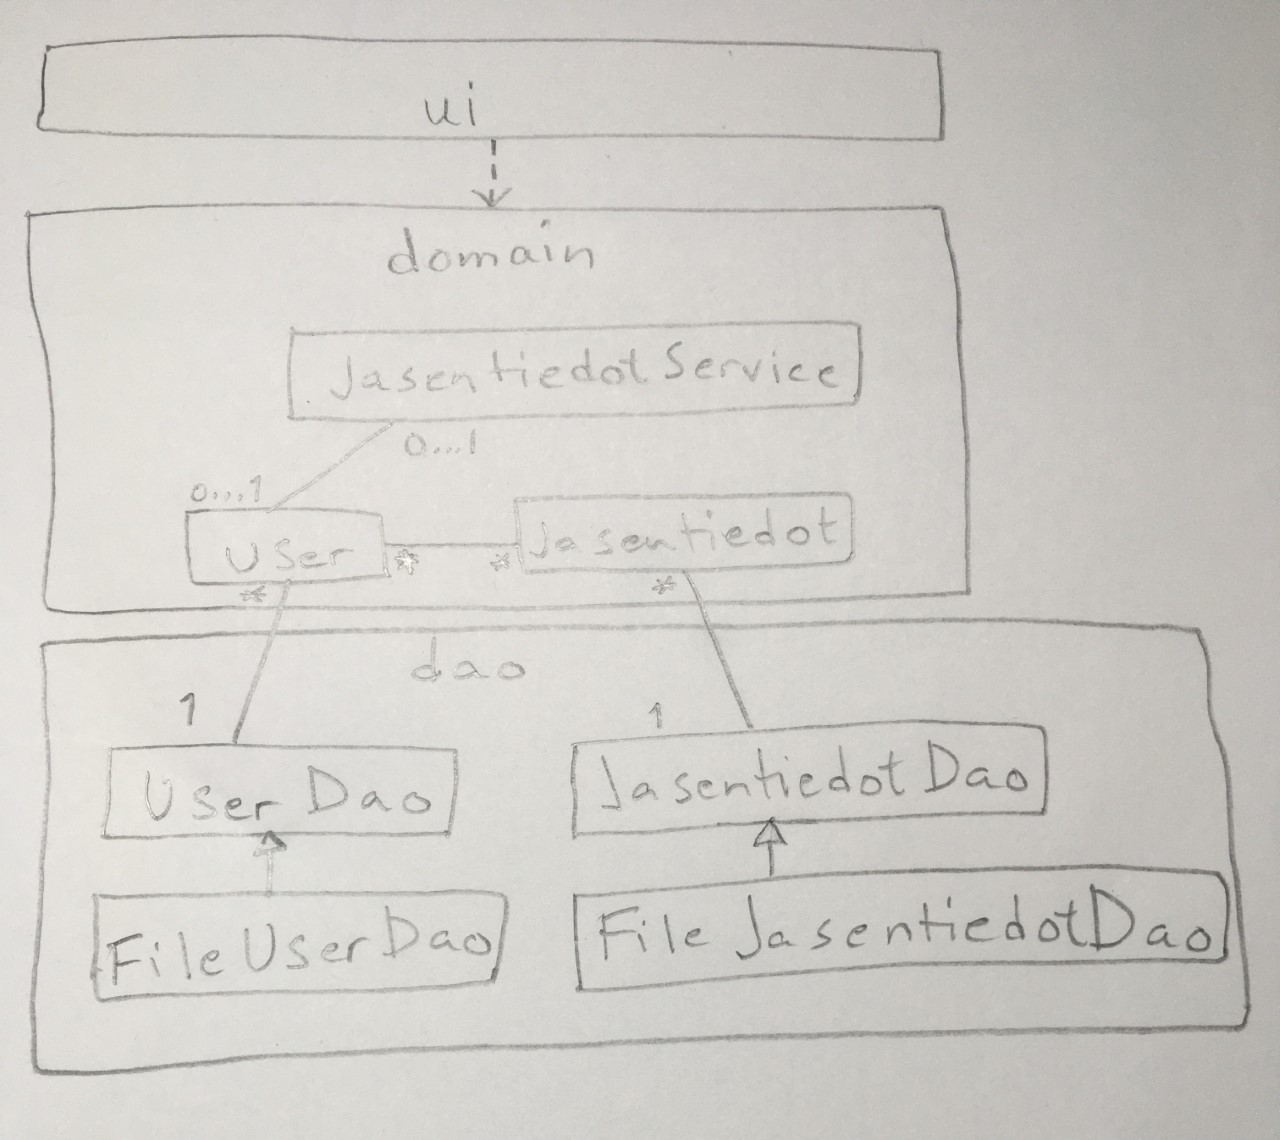 ui
domain
JasentiedotService
0...1
0...1
User
*
*
Jasentiedot
*
*
dao
1
1
UserDao
JasentiedotDao
FileUserDao
FileJasentiedotDao